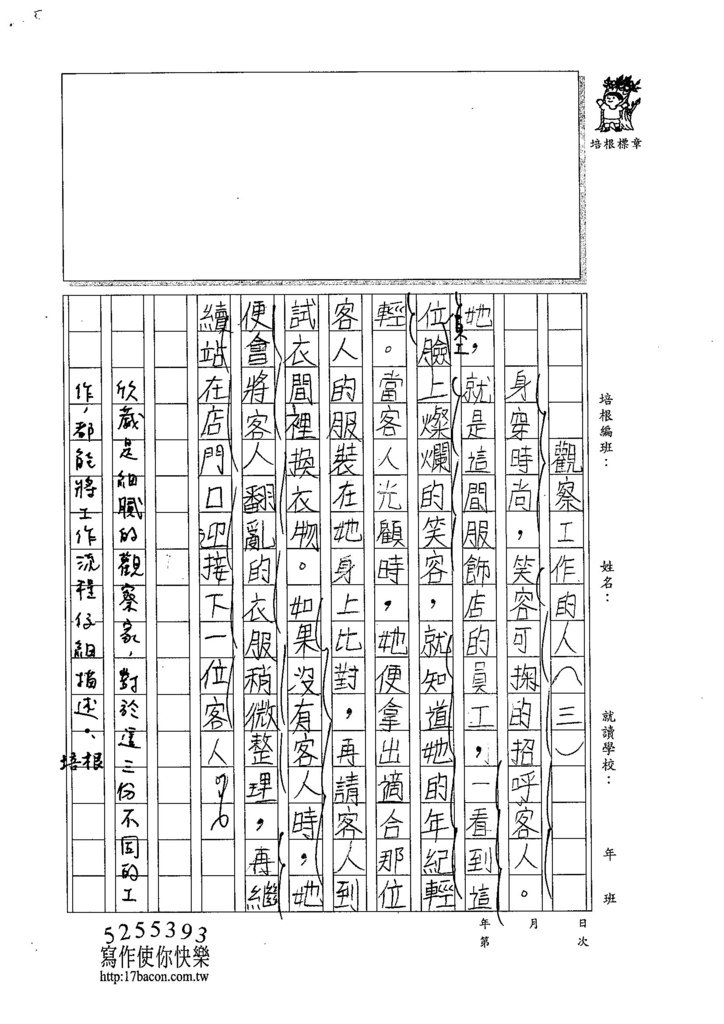 培根標章
培根編班：
姓名：
就讀學校：
年
班
年
月
日
第
次
觀察工作的人（三）
身穿時尚，笑容可掬的招呼客人。
她，就是這間服飾店的員工，一看到這
員工
位臉上燦爛的笑容，就知道她的年紀輕
輕。當客人光顧時，她便拿出適合那位
客人的服裝在她身上比對，再請客人到
試衣間裡換衣物。如果沒有客人時，她
便會將客人翻亂的衣服稍微整理，再繼
續站在店門口迎接下一位客人
欣葳是細膩的觀察家，對於這三份不同的工
作，都能將工作流程仔細描述。
培根
5255393
寫作使你快樂
http:17bacon.com.tw